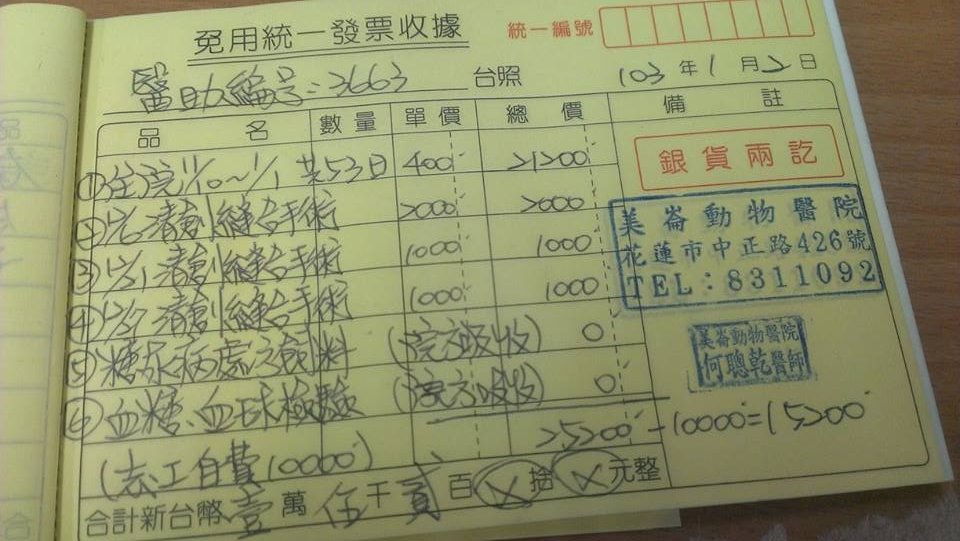 免用統一發票收據
統一編號
醫助編号:3663 台照 103年1月2日
品名 數量 單價 總價 備註
①住院11/10~1/1 共53日 400 21200
銀貨兩訖
② 清創縫合手術 2000 2000
③ 12/1清創縫合手術 1000 1000
④ 清創縫合手術 1000 1000
美崙動物醫院
花蓮市中正路426號
TEL:8311092
⑤糖尿病處方飼料 (院方吸收) 0
美崙動物醫院
何聰乾醫師
⑥血糖、血球檢驗 (院方吸收) 0
25200-10000=15200
(志工自費10000)
合計新台幣壹萬伍千貳百X拾X元整